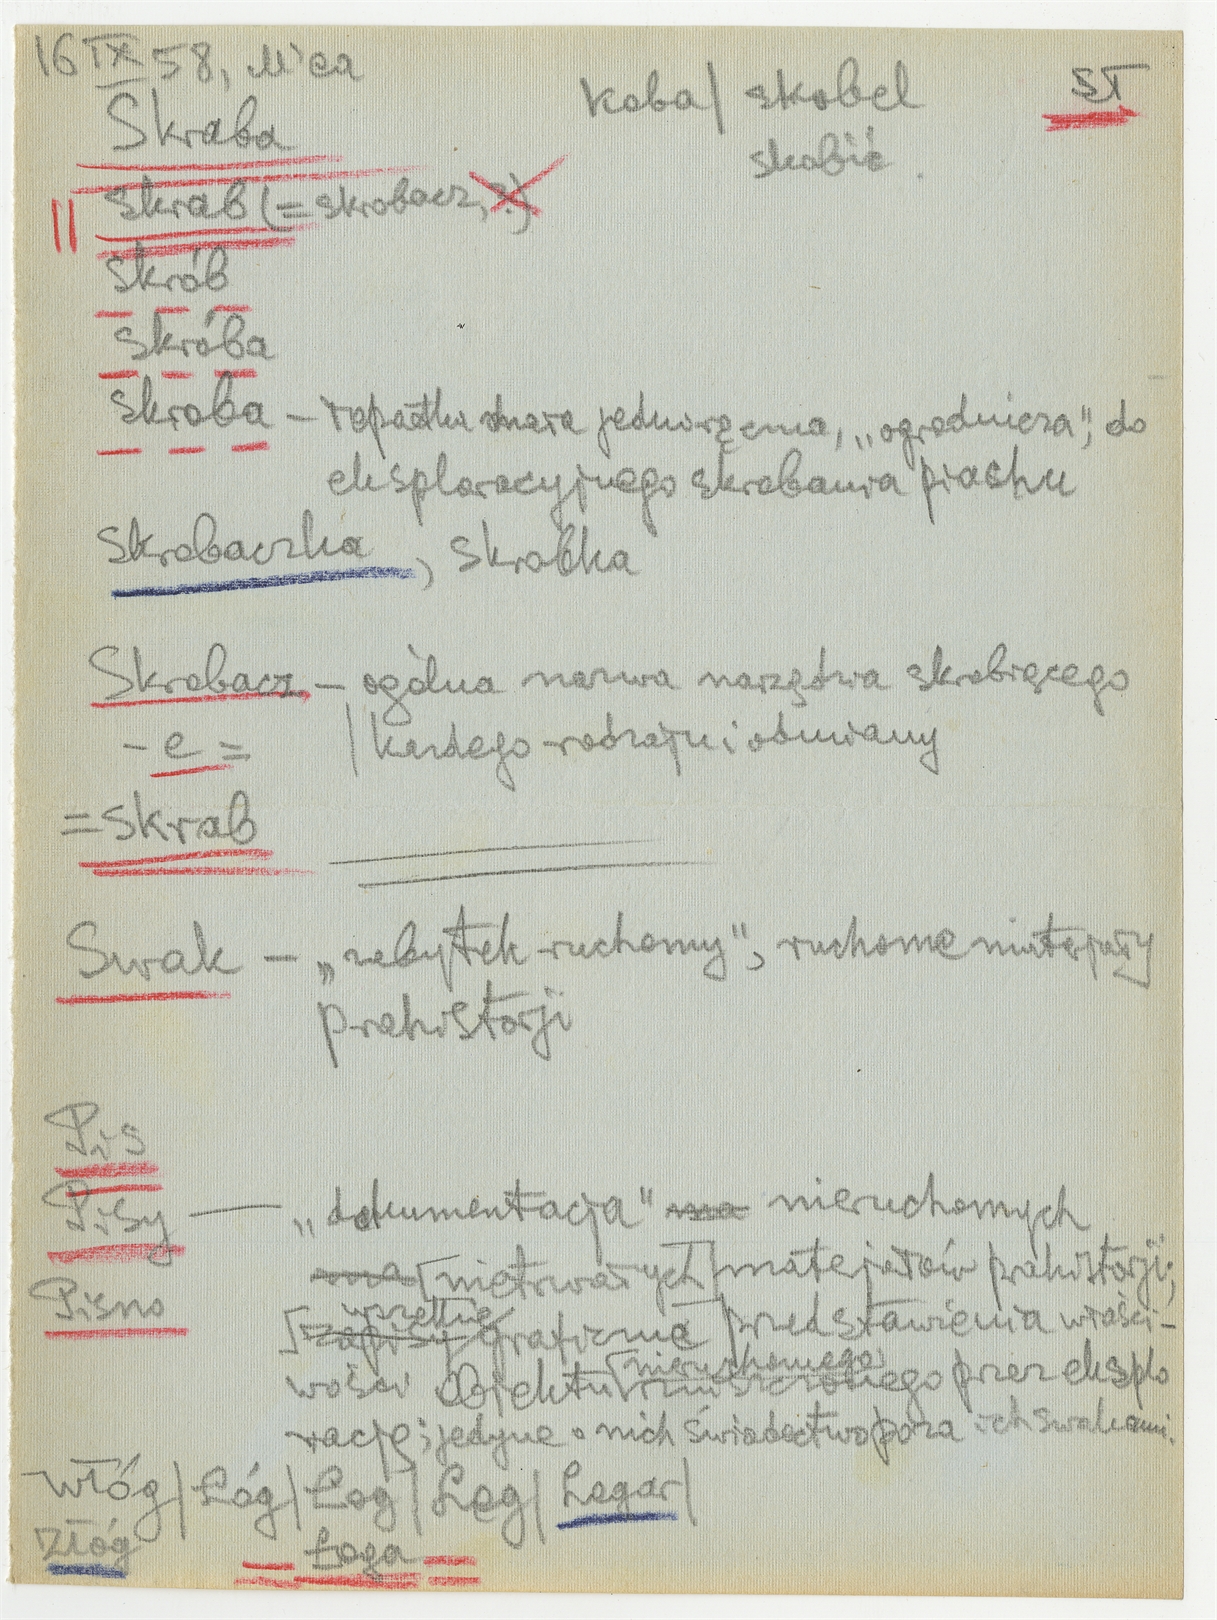 16 IX 58, M'ca
ST
Skraba
Koba | skobel
skobić
Skrab (= skrobacz, ?)
Skrób
Skróba
Skroba – łopatka mała jednoręczna, „ogrodnicza", do
eksploracyjnego skrobania piachu
Skrobaczka, Skrobka
Skrobacz – ogólna nazwa narzędzia skrobiącego
- e = | każdego rodzaju i odmiany
= Skrab
Swak – „zabytek ruchomy", ruchome materjały
prahistorji
Pis
Pisy — „dokumentacja" nieruchomych
[nietrwałych] materjałów prahistorji;
Pismo
[zapisy wszelkie graficzne przedstawienia właści-
wości Objektu [nieruchomego zniszczonego przez eksplo
rację; jedyne o nich świadectwo poza ich swakami.
Włóg | Łóg | Łog | Łęg | Legar |
Złóg
Łoga